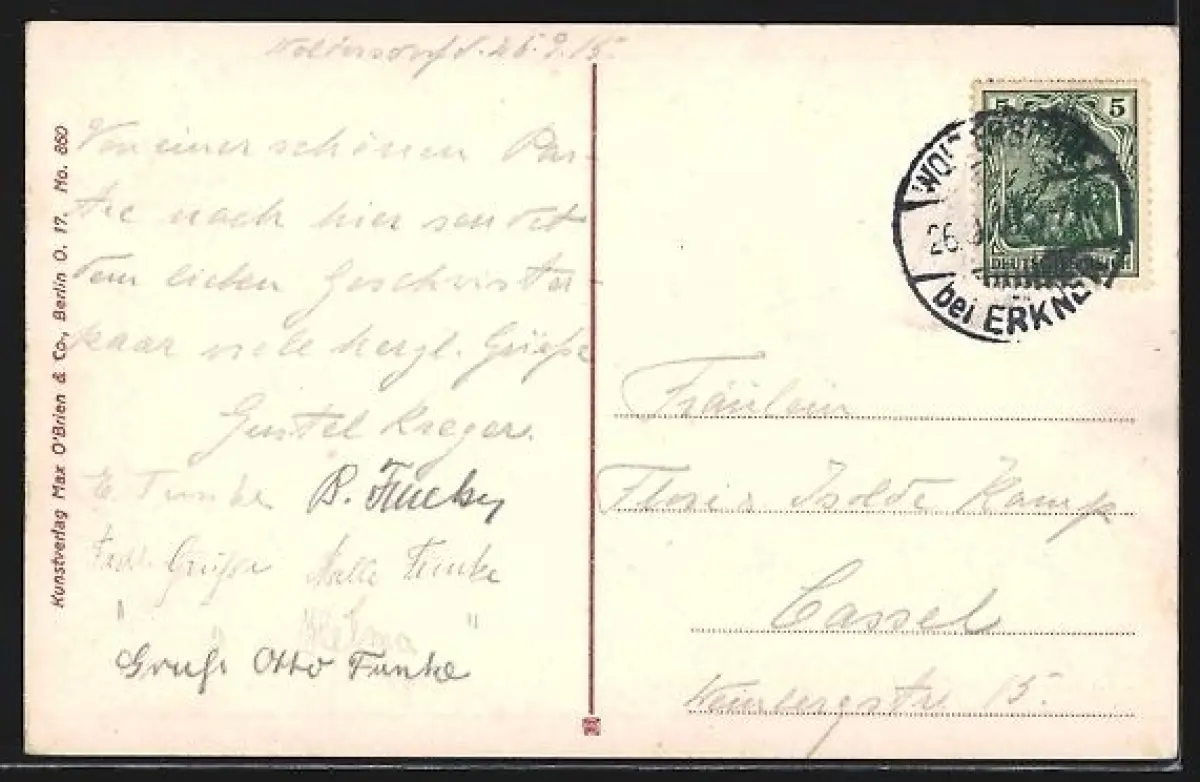 Woltersdorf d. 26.9.15.
Von einer schönen Par-
tie nach hier sendet
dem lieben Geschwister-
paar viele herzl. Grüße
Gustel Kreger.
E. Funke B. Funke
Frdl. Grüße Nalle Funke
" " Helma "
Gruß. Otto Funke
Kunstverlag Max O'Brien & Co., Berlin O. 17. No. 860
5 5
DEUTSCHES REICH
WOLTERSDORF
26.9.
bei ERKNER
Fräulein
Isolde Kamp
Cassel
Weinbergstr. 15.